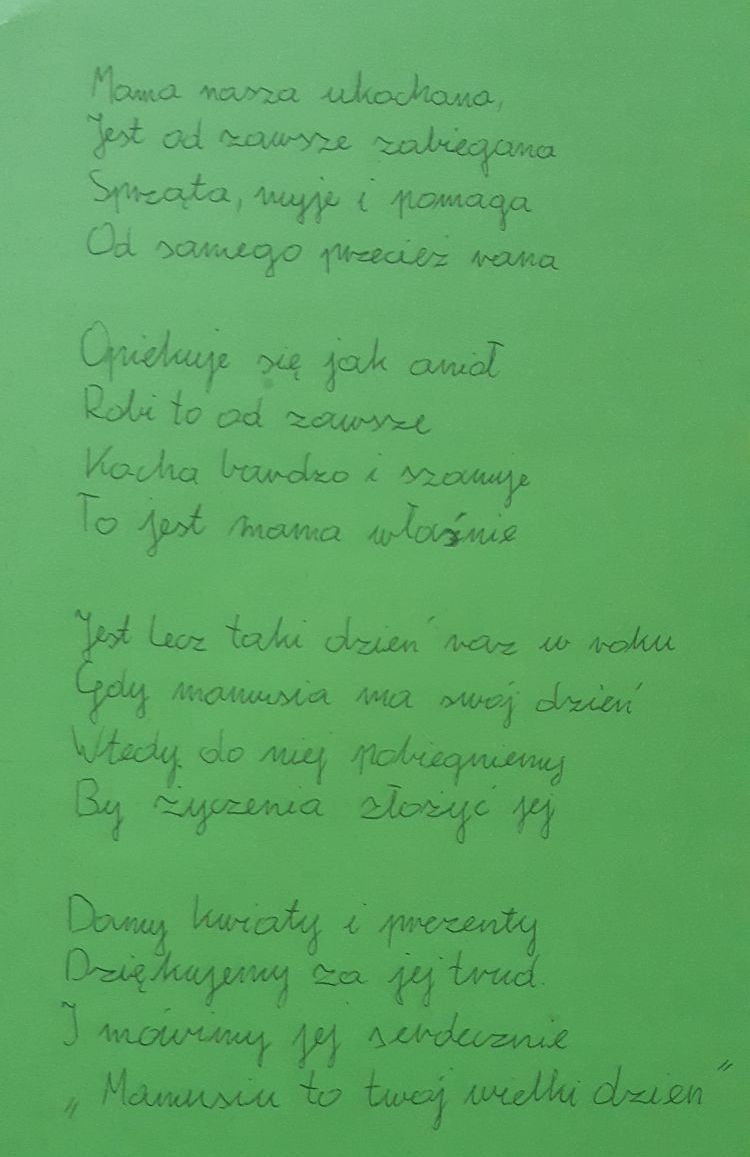 Mama nasza ukochana,
Jest od zawsze zabiegana
Sprząta, myje i pomaga
Od samego przecież rana
Opiekuje się jak anioł
Robi to od zawsze
Kocha bardzo i szanuje
To jest mama właśnie
Jest lecz taki dzień raz w roku
Gdy mamusia ma swój dzień
Wtedy do niej pobiegniemy
By życzenia złożyć jej
Damy kwiaty i prezenty
Dziękujemy za jej trud.
I mówimy jej serdecznie
„Mamusiu to twój wielki dzień"